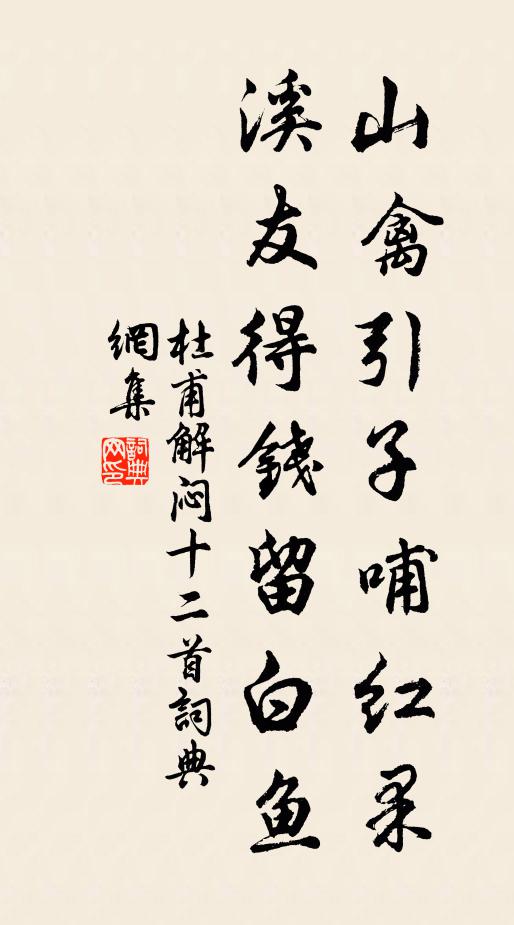 山禽引子哺红果
溪友得錢留白鱼
杜甫解闷十二首詞典
網集
詞典
网印